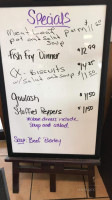 Specials
Meat Loaf
pot and salad or
Soup
Fish Fry Dinner
$12.99
CK - Biscuits
w/ salad and soup
Goulash
$11.50
Stuffed Peppers
$11.50
Above dinners include
Soup and salad
Soup: Beef Barley